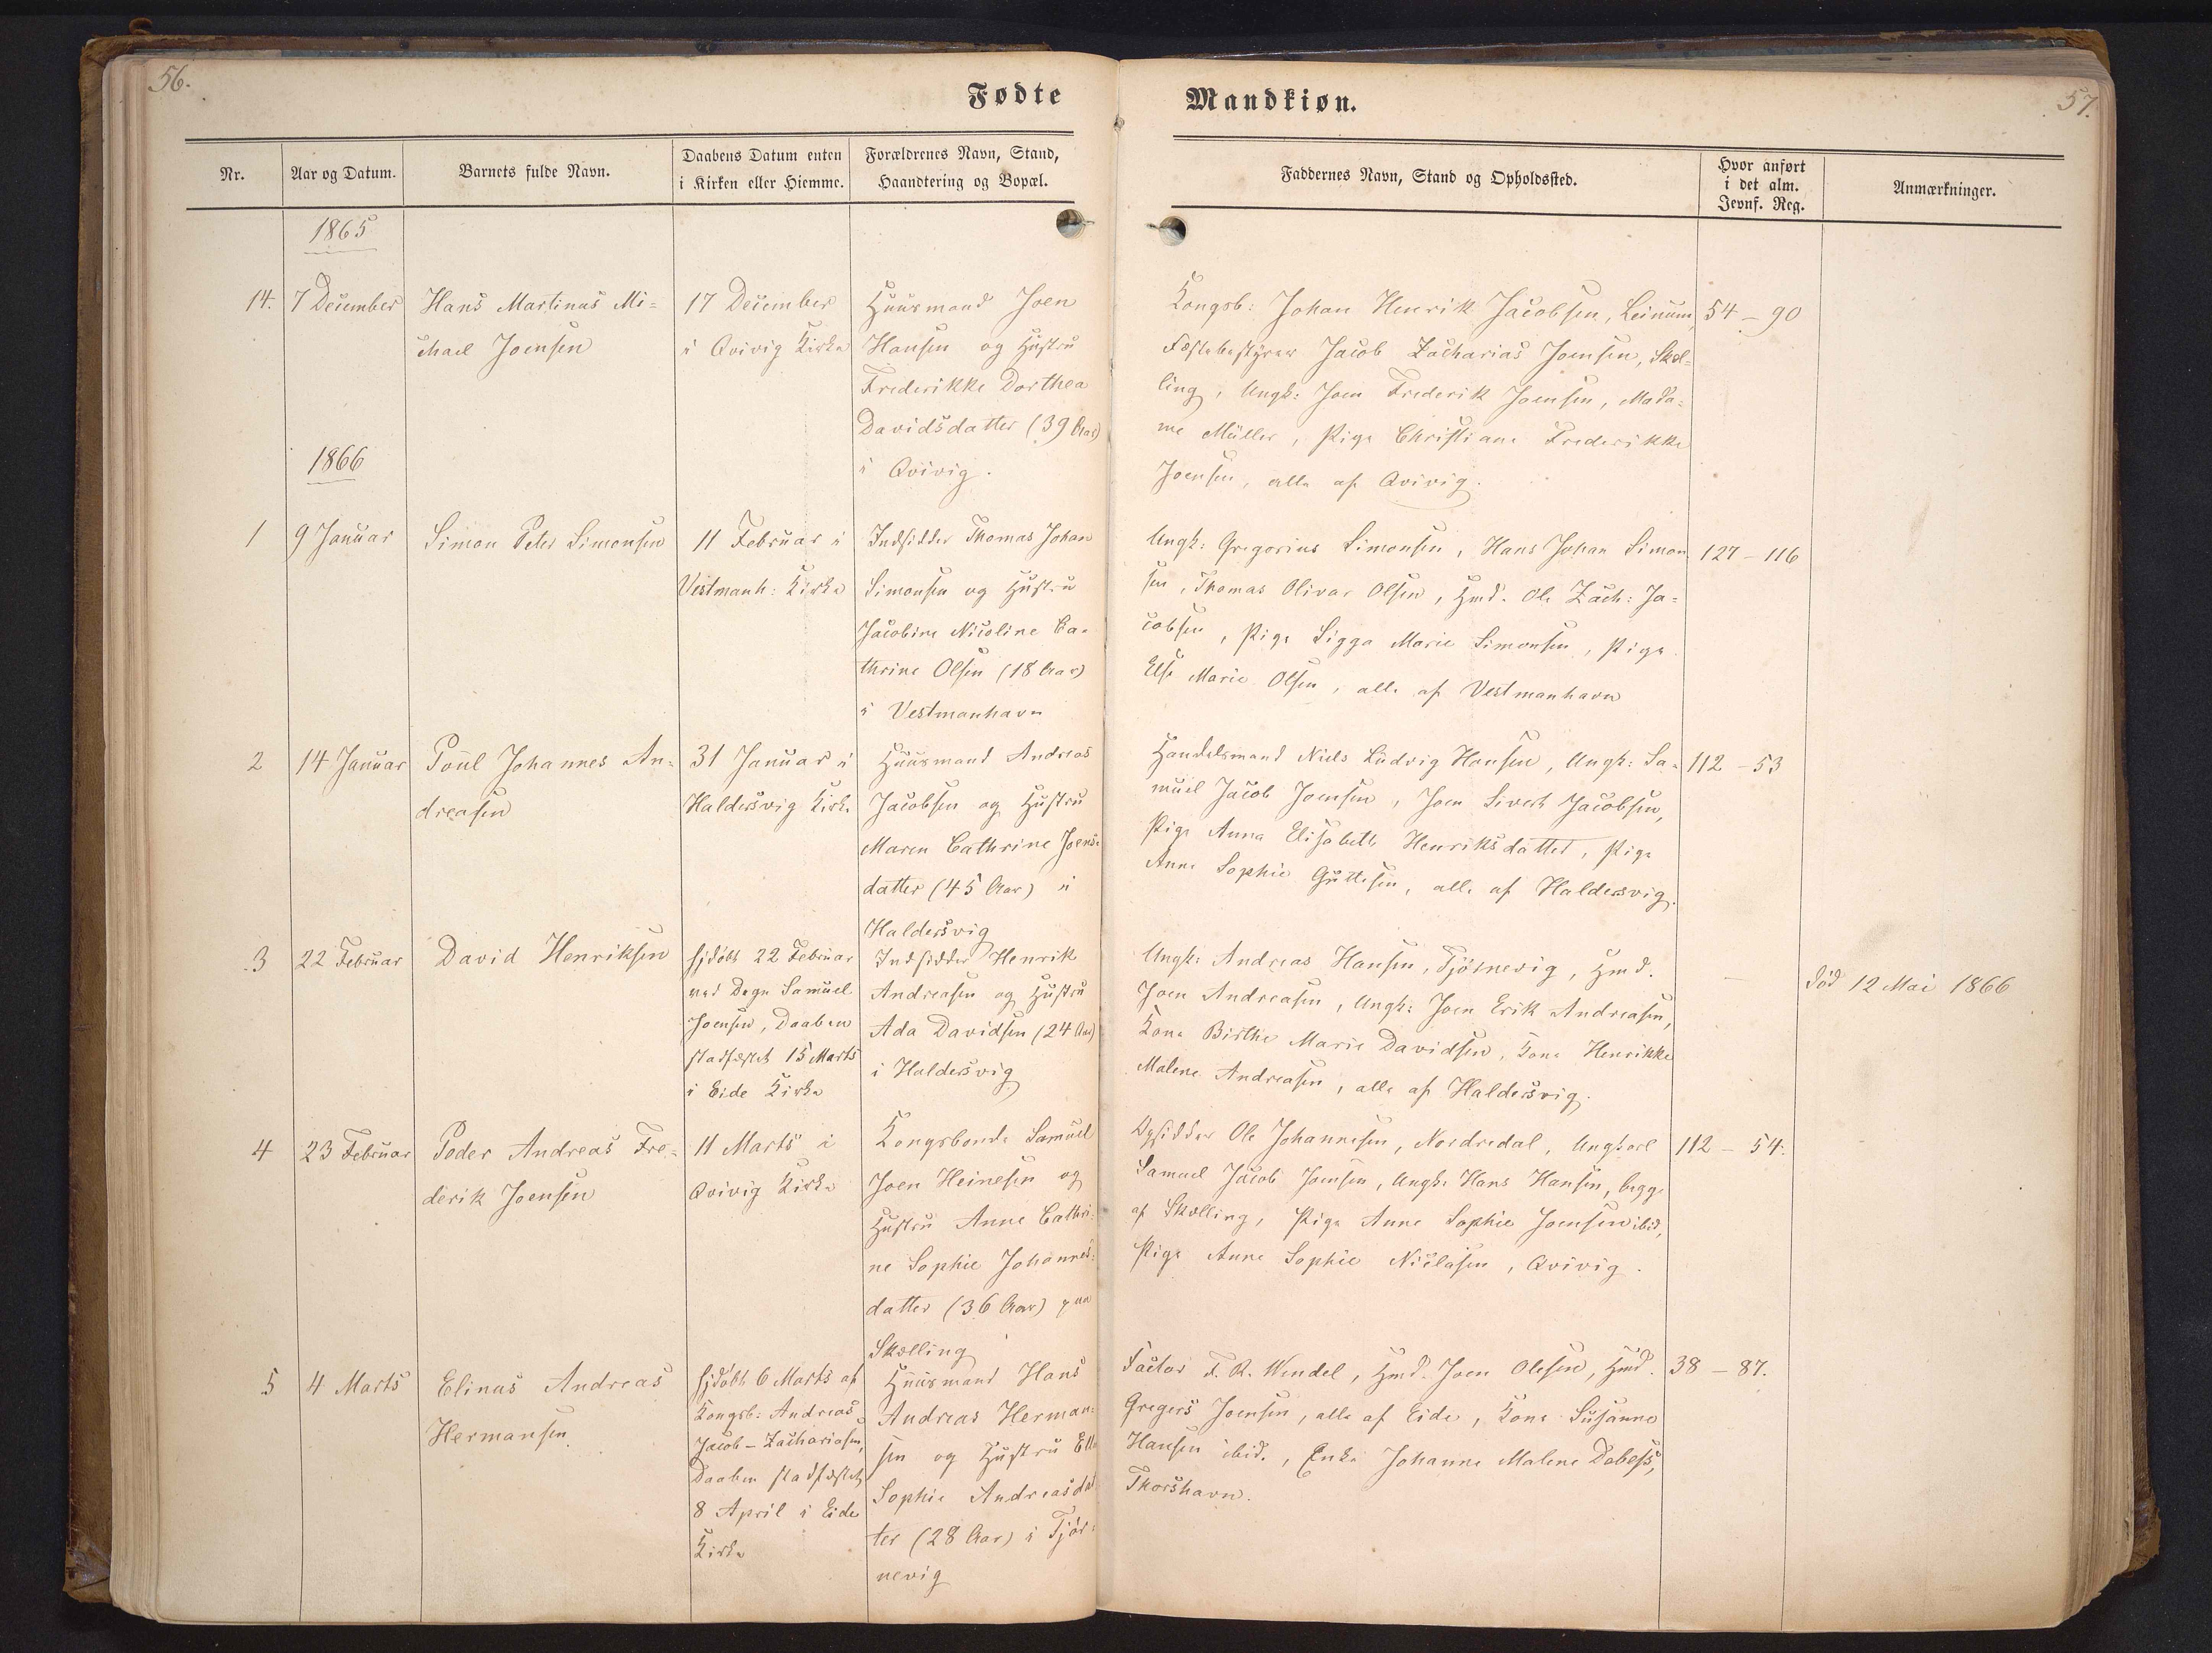 56.
Fødte
Nr.
Aar og Datum.
Barnets fulde Navn.
Daabens Datum enten
i Kirken eller Hiemme.
Forældrenes Navn, Stand,
Haandtering og Bopæl.
1865
14.
7 December
Hans Martinus Mi=
chael Joensen
17 December
i Qvivig Kirke
Huusmand Joen
Hansen og Hustru
Frederikke Dorthea
Davidsdatter (39 Aar)
i Qvivig.
1866
1
9 Januar
Simon Peter Simonsen
11 Februar i
Vestmanh: Kirke
Indsidder Thomas Johan
Simonsen og Hustru
Jacobine Nicoline Ca=
thrine Olsen (18 Aar)
i Vestmanhavn
2
14 Januar
Poul Johannes An=
dreasen
31 Januar i
Haldersvig Kirke
Huusmand Andreas
Jacobsen og Hustru
Maren Cathrine Joens=
datter (45 Aar) i
Haldersvig
3
22 Februar
David Henriksen
hjdøbt 22 Februar
ved Degn Samuel
Joensen, Daaben
stadfæstet 15 Marts
i Eide Kirke
Indsidder Henrik
Andreasen og Hustru
Ada Davidsen (24 Aar)
i Haldersvig
4
23 Februar
Peder Andreas Fre=
derik Joensen
11 Marts i
Qvivig Kirke
Kongsbonde Samuel
Joen Heinesen og
Hustru Anne Cathri=
ne Sophie Johannes=
datter (36 Aar) paa
Skælling
5
4 Marts
Elinus Andreas
Hermansen
hjdøbt 6 Marts af
Kongsb: Andreas
Jacob Zachariasen,
Daaben stadfæstet
8 April i Eide
Kirke
Huusmand Hans
Andreas Herman=
sen og Hustru Else
Sophie Andreasdat
ter (28 Aar) i Tjør=
nevig
Mandkiøn.
57.
Faddernes Navn, Stand og Opholdssted.
Hvor anført
i det alm.
Jevnf. Reg.
Anmærkninger.
Kongsb: Johan Henrik Jacobsen, Leinum,
Fæstebestyrer Jacob Zacharias Joensen, Skæl=
ling, Ungk: Joen Frederik Joensen, Mada=
me Müller, Pige Christiane Frederikke
Joensen, alle af Qvivig.
54 – 90
Ungk: Gregorius Simonsen, Hans Johan Simon
sen, Thomas Olivar Olsen, Hmd. Ole Zach: Ja=
cobsen, Pige Sigga Marie Simonsen, Pige
Else Marie Olsen, alle af Vestmanhavn
127 – 116
Handelsmand Niels Ludvig Hansen, Ungk: Sa=
muel Jacob Joensen, Joen Sivert Jacobsen,
Pige Anna Elisabeth Henriksdatter, Pige
Anne Sophie Guttesen, alle af Haldersvig.
112 – 53
Ungk: Andreas Hansen, Tjørnevig, Hmd.
Joen Andreasen, Ungk: Joen Erik Andreasen,
Kone Birthe Marie Davidsen, Kone Henrikke
Malene Andreasen, alle af Haldersvig.
–
død 12 Mai 1866
Opsidder Ole Johannesen, Nordredal, Ungkarl
Samuel Jacob Joensen, Ungk: Hans Hansen, begge
af Skælling, Pige Anne Sophie Joensen ibid,
Pige Anne Sophie Niclasen, Qvivig.
112 – 54.
Factor F. R. Wendel, Hmd. Joen Olesen, Hmd.
Gregers Joensen, alle af Eide, Kone Susanne
Hansen ibid., Enke Johanne Malene Debess,
Thorshavn.
38 – 87.